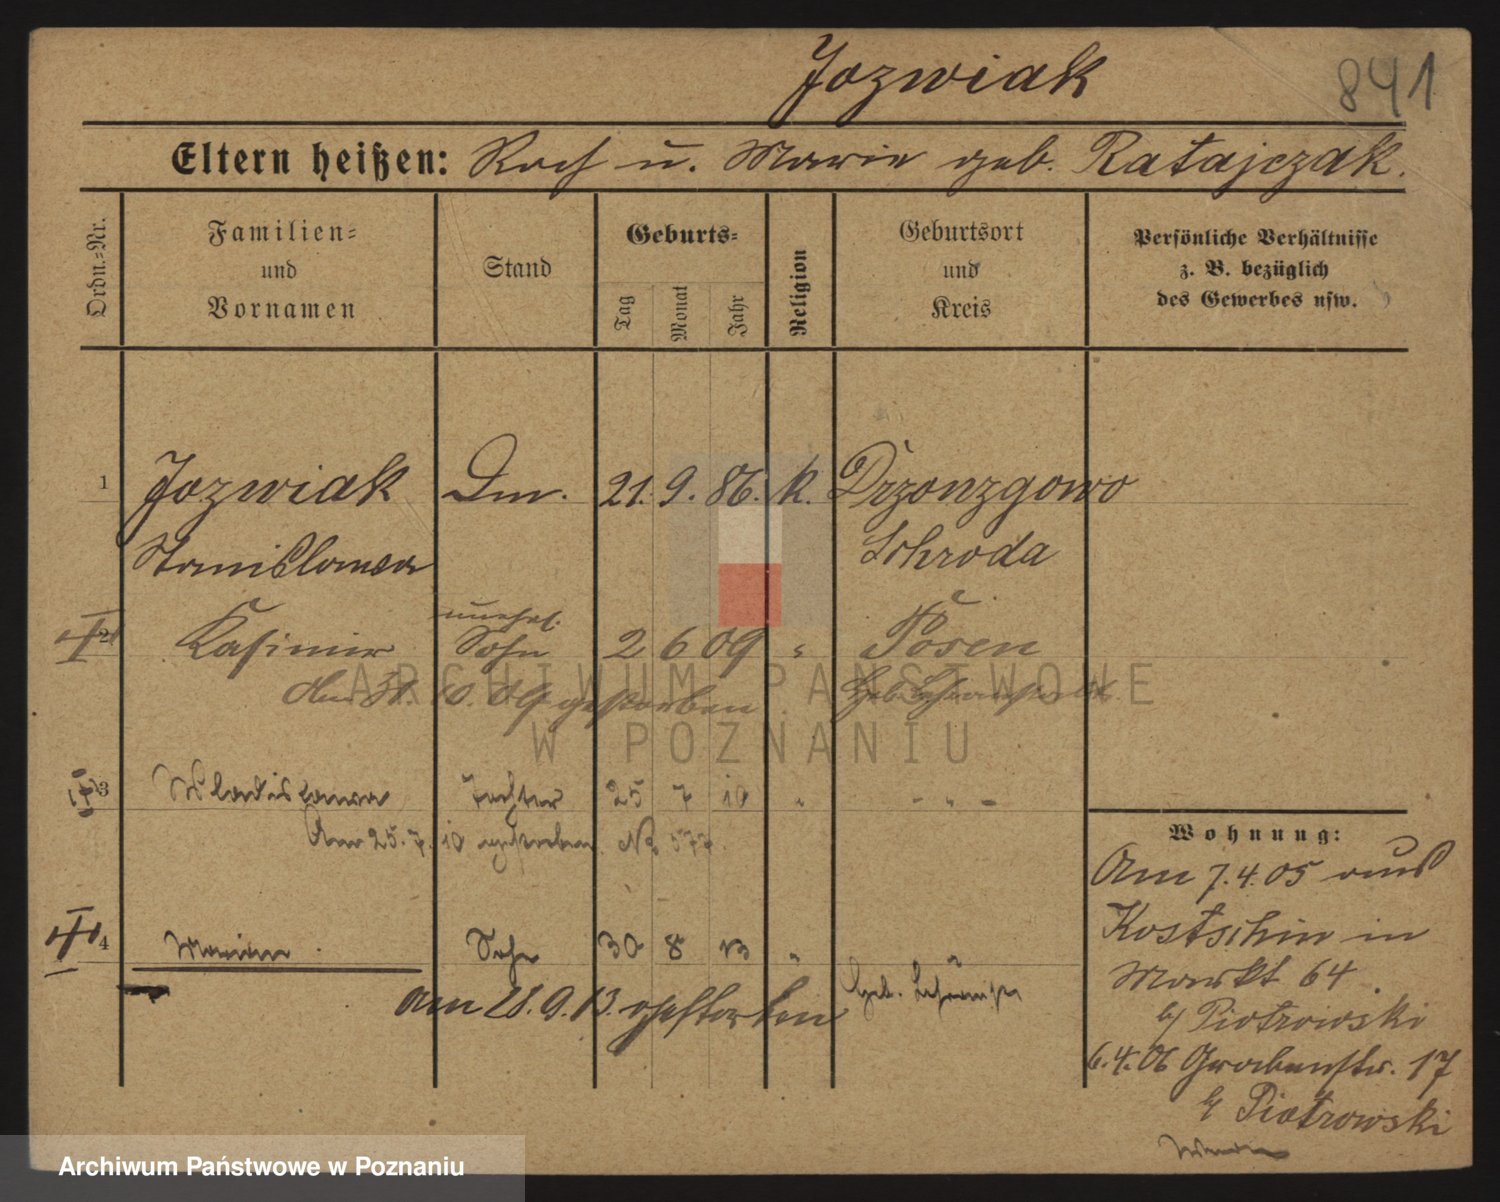 Jozwiak
841
Eltern heißen: Roch u. Marie geb. Ratajczak.
Ordn.-Nr.
Familien- und Vornamen
Stand
Geburts-
Tag
Monat
Jahr
Religion
Geburtsort und Kreis
Persönliche Verhältnisse
z. B. bezüglich
des Gewerbes usw.
1 Jozwiak Dm. 21. 9. 86. k. Drzonzgowo
Stanislawa Schroda
unehel.
2 Kasimir Sohn 2 6 09 " Posen
den 31. 10. 09 gestorben Geb.
3 Wladislawa Tochter 25 7 10 " - " -
Am 25. 7. 10 gestorben No 577.
4 Marian Sohn 30 8 13 "
am 28. 9. 13. gestorben Geb.
Wohnung:
Am 7.4.05 aus
Kostschin in
Markt 64.
b/ Piotrowski
6.4.06 Grabenstr. 17
b/ Piotrowski
ARCHIWUM PAŃSTWOWE
W POZNANIU
Archiwum Państwowe w Poznaniu